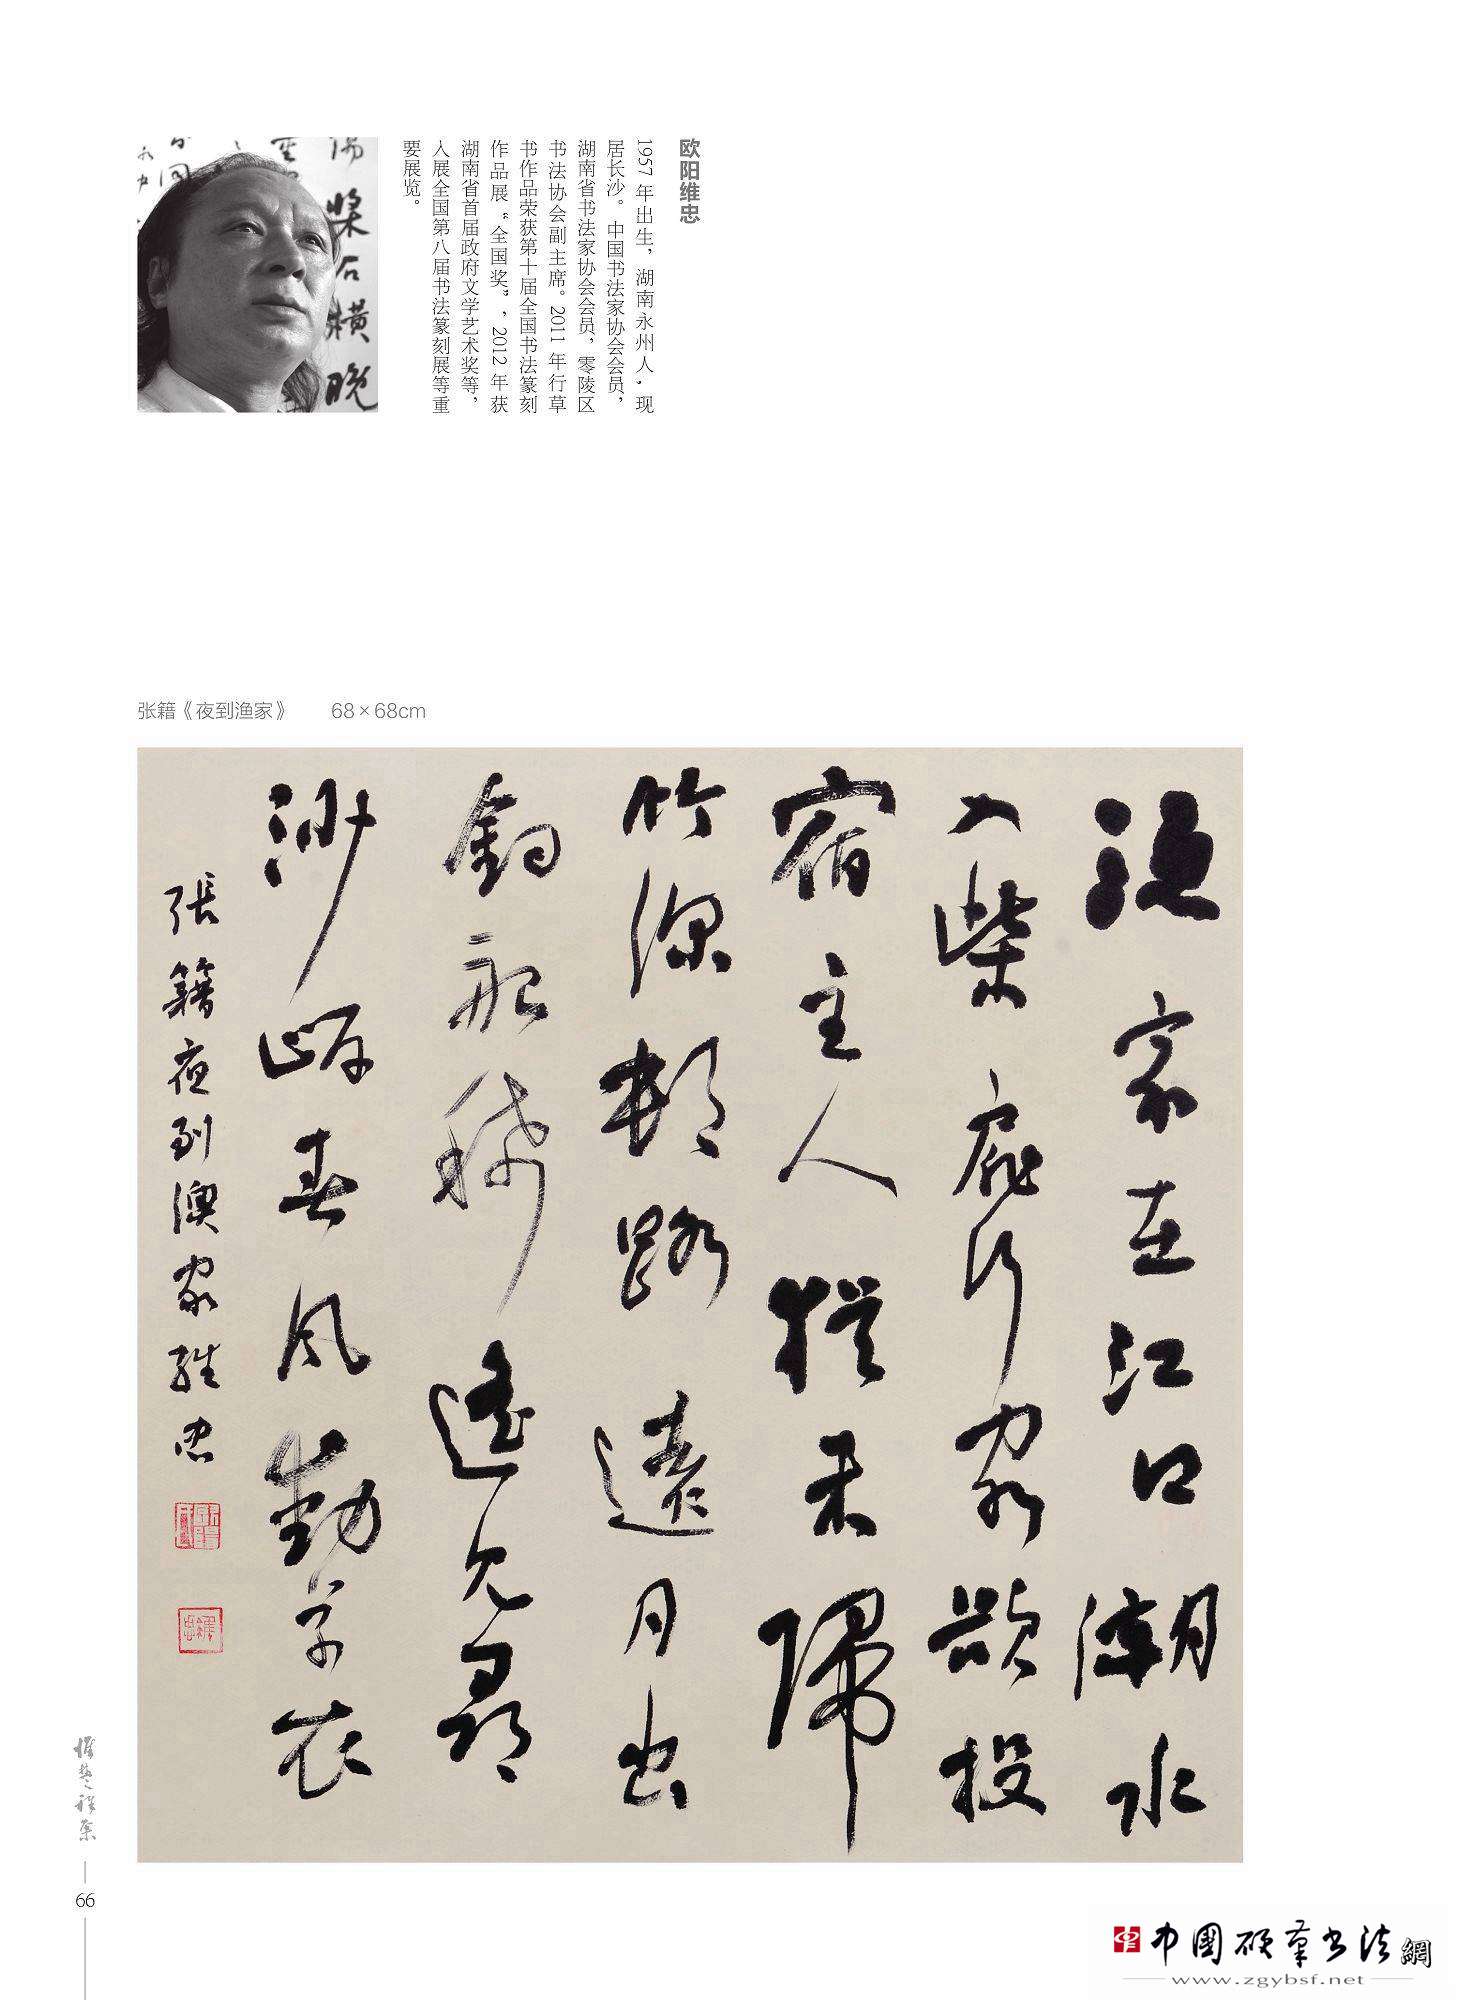 欧阳维忠
1957 年出生，湖南永州人，现
居长沙。中国书法家协会会员，
湖南省书法家协会会员，零陵区
书法协会副主席。2011 年行草
书作品荣获第十届全国书法篆刻
作品展“全国奖”，2012 年获
湖南省首届政府文学艺术奖等，
入展全国第八届书法篆刻展等重
要展览。
张籍《夜到渔家》 68×68cm
漁家在江口潮水
入柴扉行客欲投
宿主人猶未歸
竹深邨路遠月出
釣船稀遙見尋
沙岸春風動草衣
張籍夜到漁家維忠
66
中国硬筆书法網
www.zgybsf.net